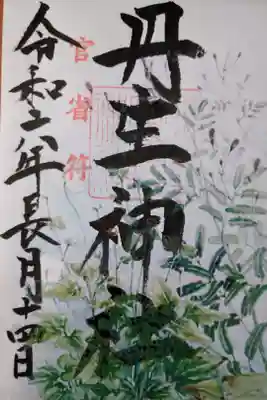 官省符
丹生神社
令和六年長月十四日